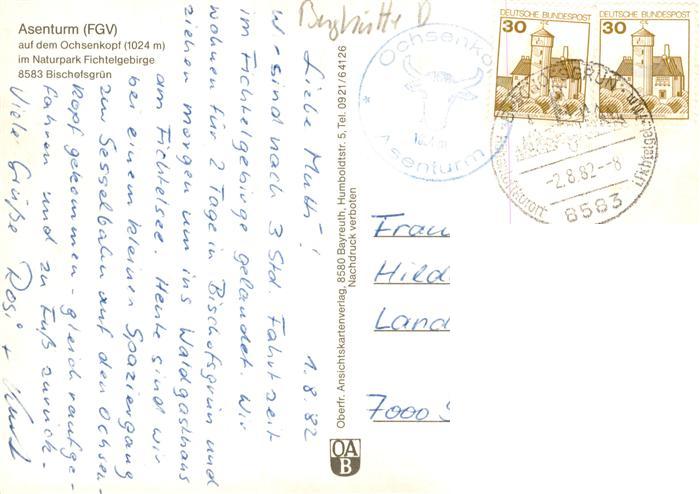 Asenturm (FGV)
auf dem Ochsenkopf (1024 m)
im Naturpark Fichtelgebirge
8583 Bischofsgrün
Berghütte D
Liebe Muth!
1.8.82
Wir sind nach 3 Std. Fahrtzeit
im Fichtelgebirge gelandet. Wir
wohnen für 2 Tage in Bischofsgrün und
ziehen morgen um ins Waldgasthaus
am Fichtelsee. Heute sind wir
bei einem kleinen Spaziergang
zur Sesselbahn auf den Ochsen-
kopf gekommen - gleich raufge-
fahren und zu Fuß zurück.
Viele Grüße Rosi +
Oberfr. Ansichtskartenverlag, 8580 Bayreuth, Humboldtstr. 5, Tel. 0921/64126
Nachdruck verboten
OA
B
Ochsenko
1024m
Asenturm
DEUTSCHE BUNDESPOST
30
DEUTSCHE BUNDESPOST
30
BISCHOFSGRÜN
-2.8.82--8
8583
Frau
Hild
Land
7000 S